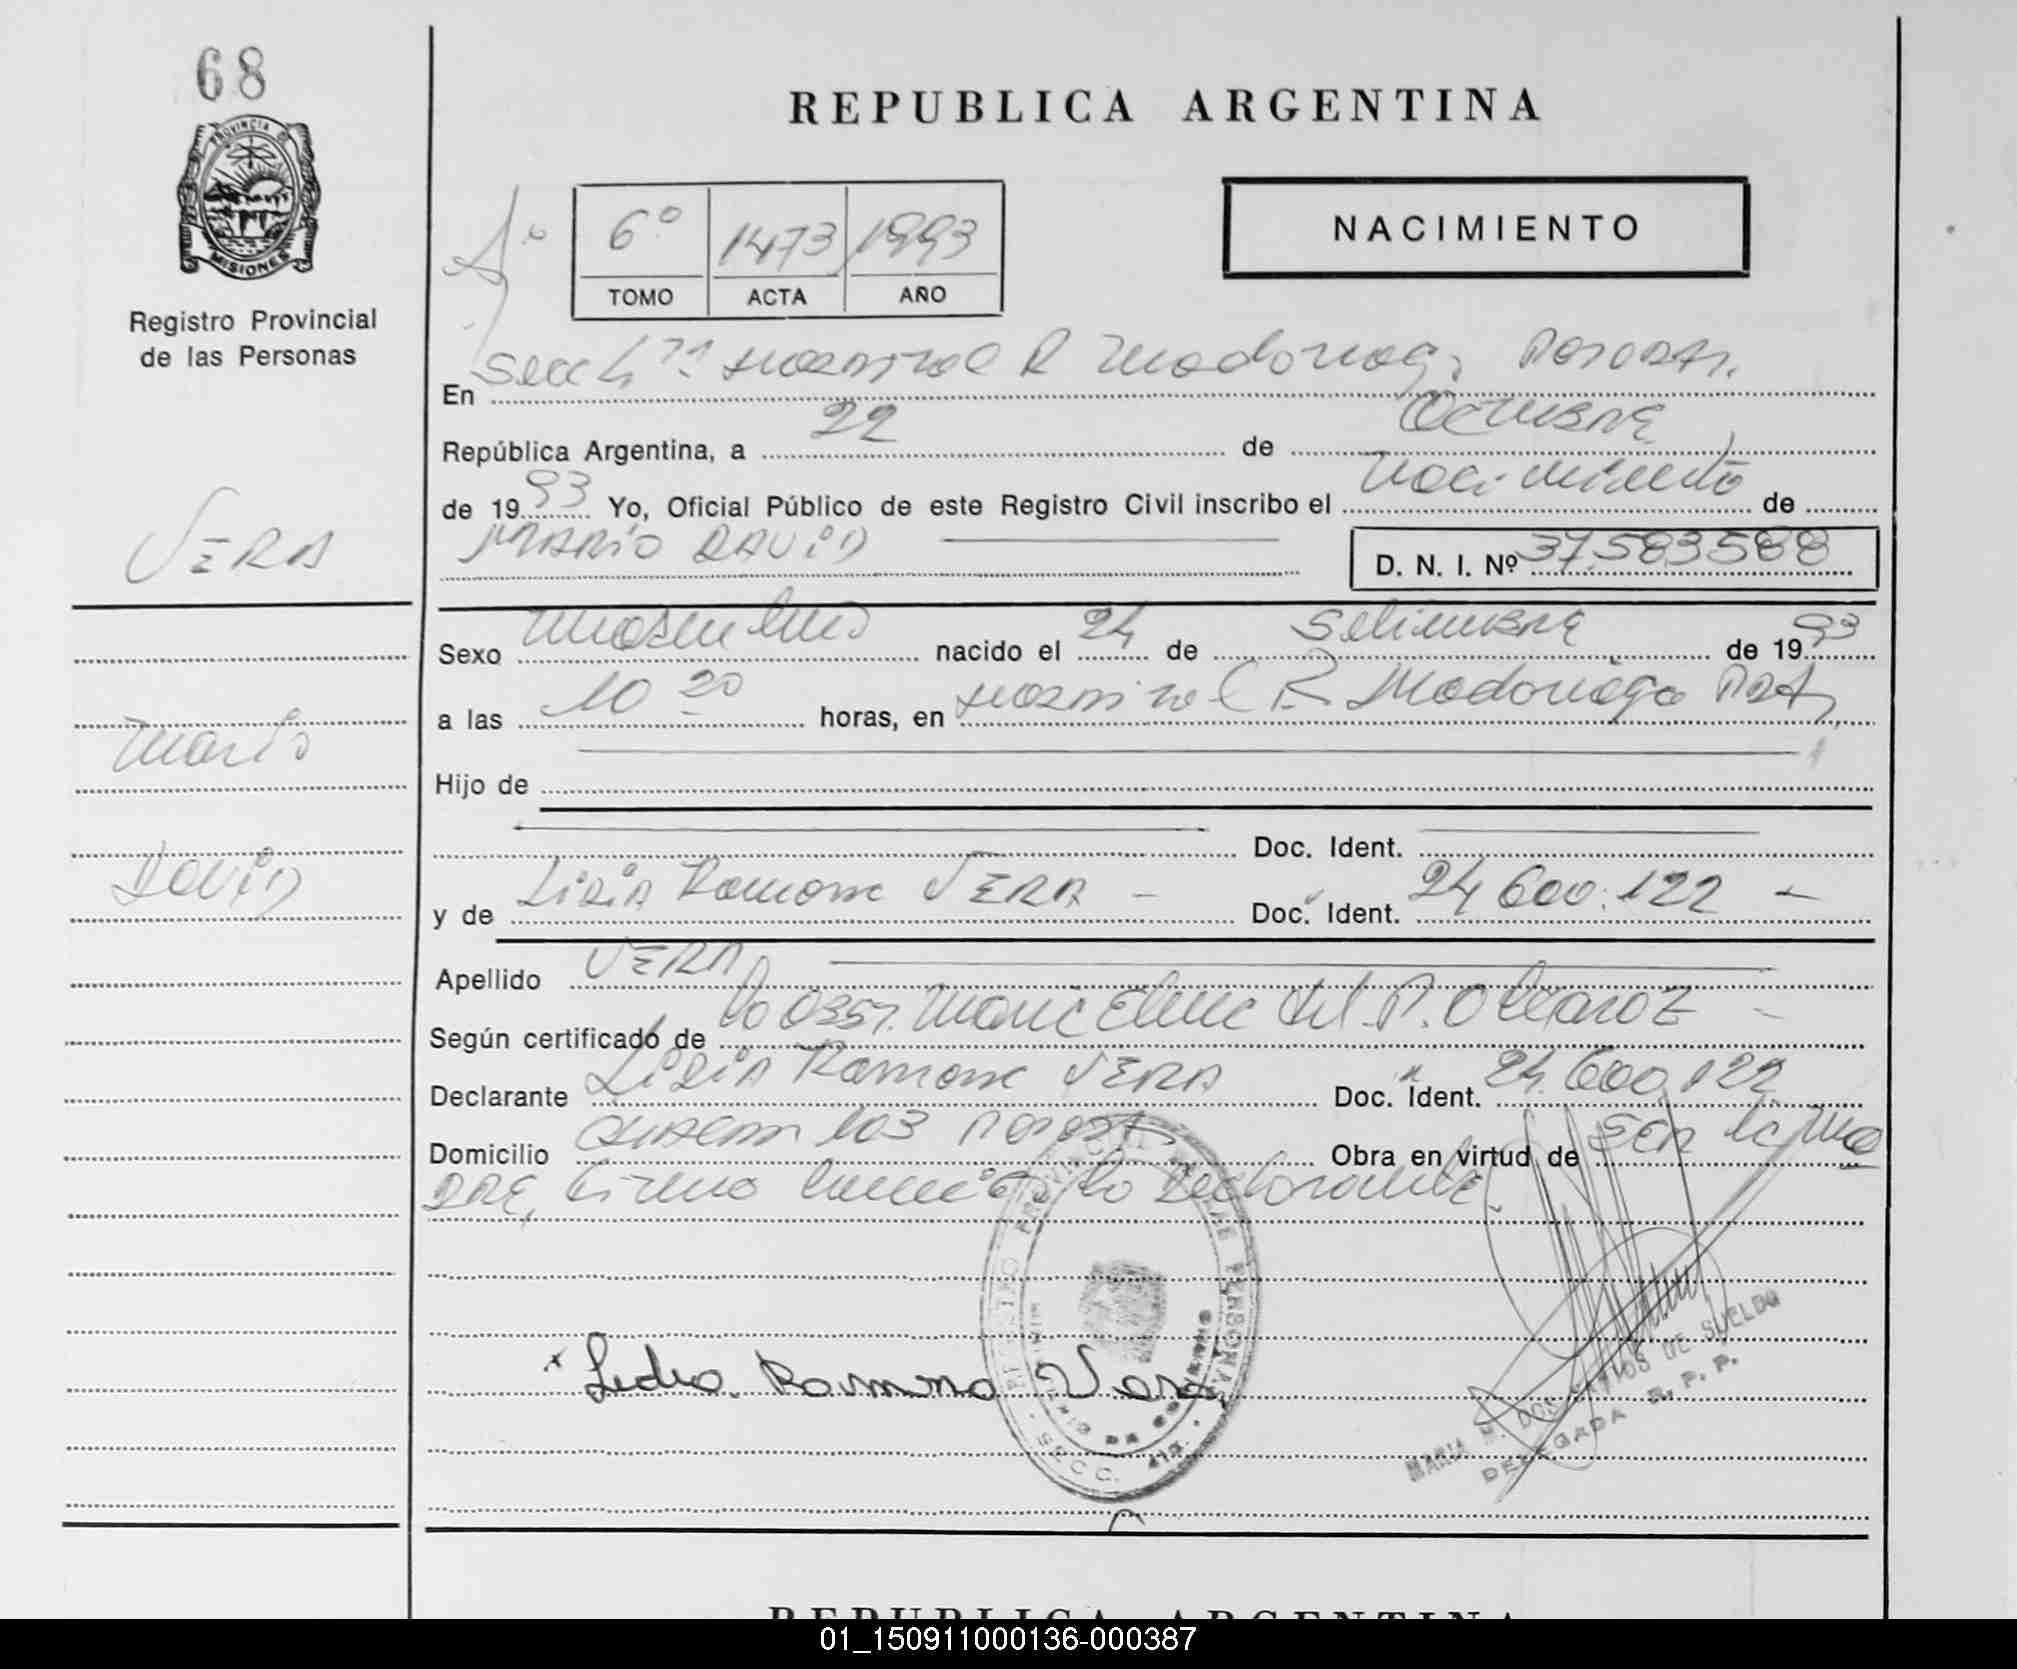 68
PROVINCIA DE
MISIONES
Registro Provincial
de las Personas
REPUBLICA ARGENTINA
6º 1473 1993
TOMO ACTA AÑO
NACIMIENTO
En Secc 4ta Hospital R Madariaga, Posadas.
República Argentina, a 22 de Octubre
de 1993 Yo, Oficial Público de este Registro Civil inscribo el nacimiento de
MARIO DAVID
D. N. I. Nº 37.583588
VERA
Mario
DAVID
Sexo masculino nacido el 24 de Setiembre de 1993
a las 10 20 horas, en Hospital R Madariaga Pdas,
Hijo de
Doc. Ident.
y de Lidia Ramona VERA - Doc. Ident. 24 600.122 -
Apellido VERA
Según certificado de la Obst. Maria Elena del P.
Declarante Lidia Ramona VERA Doc. Ident. 24.600.122
Domicilio 103 Posadas Obra en virtud de ser la ma
DRE, Firma la Declarante.
REGISTRO PROVINCIAL DE LAS PERSONAS
SECC.
Lidia Ramona Vera
MARIA M. DOS SANTOS DE SUELDO
DELEGADA R. P. P.
REPUBLICA ARGENTINA
01_150911000136-000387